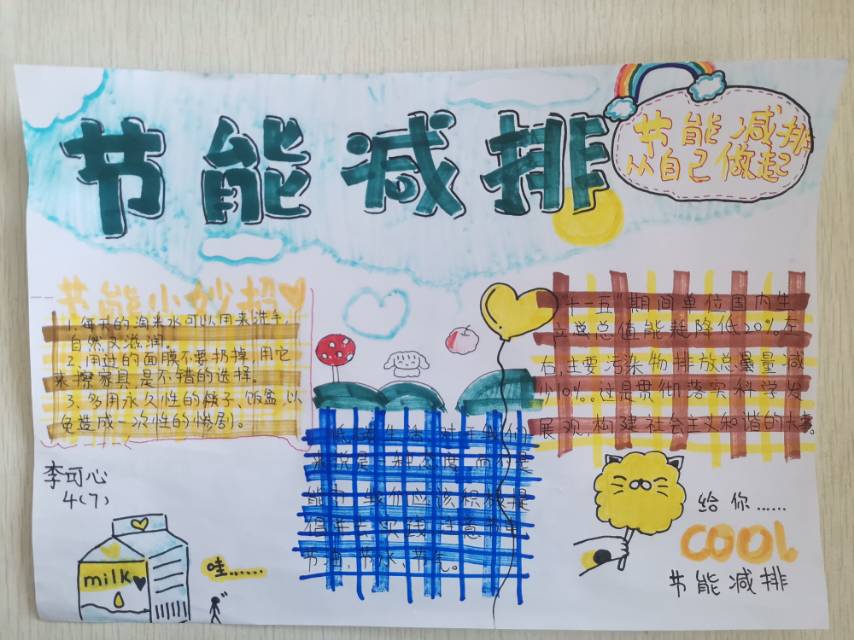 节能减排
节能减排
从自己做起
节能小妙招
1、每天的淘米水可以用来洗手
自然又滋润。
2、用过的面膜不要扔掉,用它
来擦家具是不错的选择。
3、多用永久性的筷子、饭盒,以
免造成一次性的惨剧。
"十一五"期间单位国内生
产总值能耗降低20%左
右,主要污染物排放总量减
少10%。这是贯彻落实科学发
展观,构建社会主义和谐的大事。
低碳生活对于我们
来说是一种态度,而不是
能力,我们应该积极提
节油,节水,节气。
李可心
4(7)
milk
哇……
给你……
COOL
节能减排